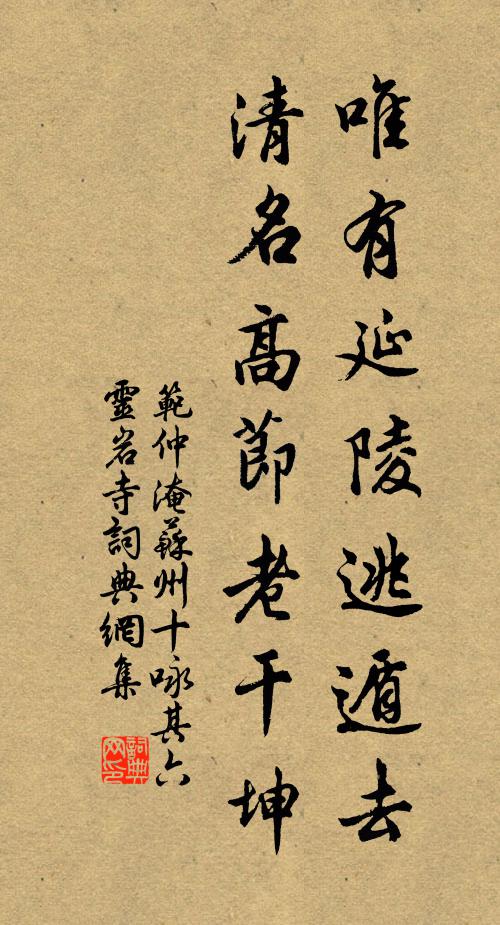 唯有延陵逃遁去
清名高節老干坤
範仲淹蘇州十咏其六
靈岩寺詞典網集
詞典网印